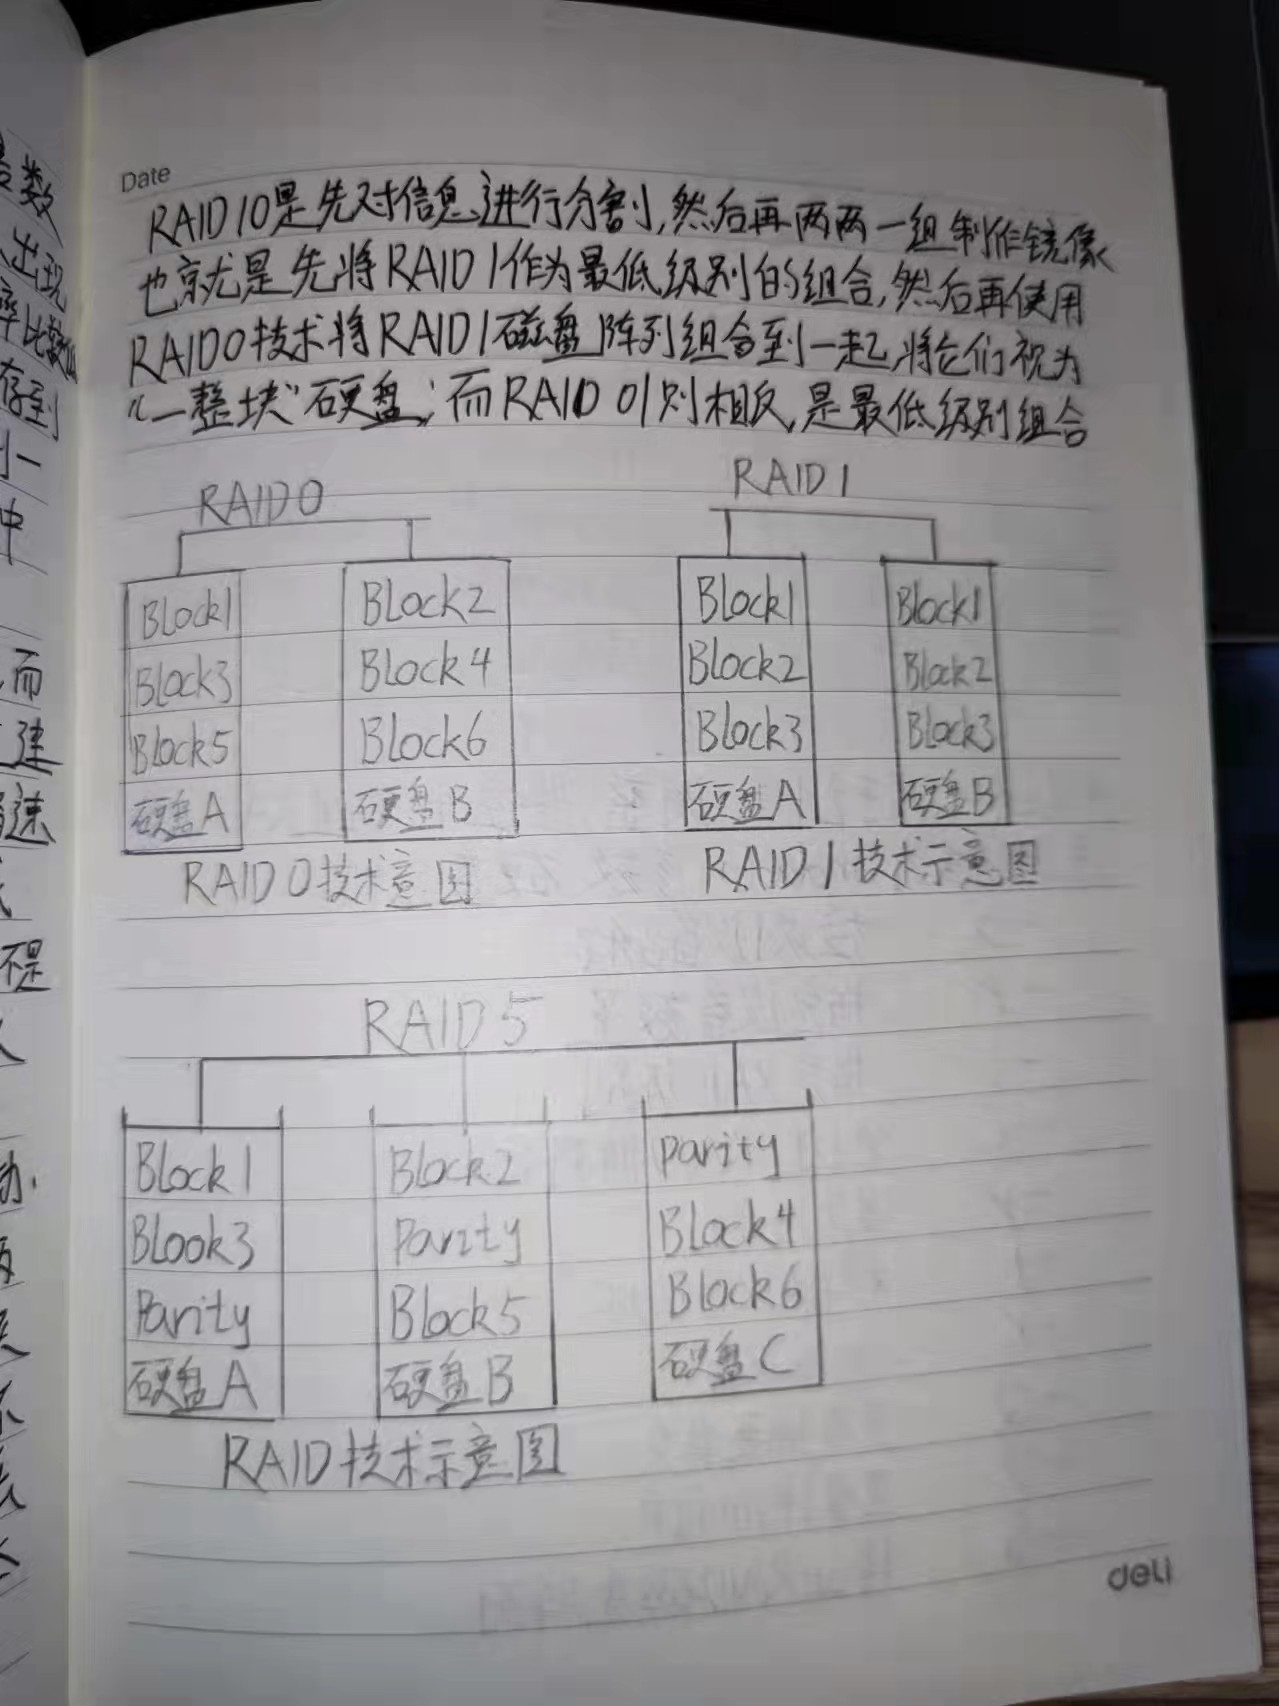 数
出现
存到
一
中
而
建
速
不是
Date
RAID10是先对信息进行分割,然后再两两一组制作镜像
也就是先将RAID1作为最低级别的组合,然后再使用
RAID0技术将RAID1磁盘阵列组合到一起,将它们视为
“一整块”硬盘;而RAID 01则相反,是最低级别组合
RAID0
RAID1
Block1 Block2 Block1 Block1
Block3 Block4 Block2 Block2
Block5 Block6 Block3 Block3
硬盘A 硬盘B 硬盘A 硬盘B
RAID0技术意图
RAID1技术示意图
RAID5
Block1 Block2 Parity
Blook3 Parity Block4
Parity Block5 Block6
硬盘A 硬盘B 硬盘C
RAID技术示意图
deli